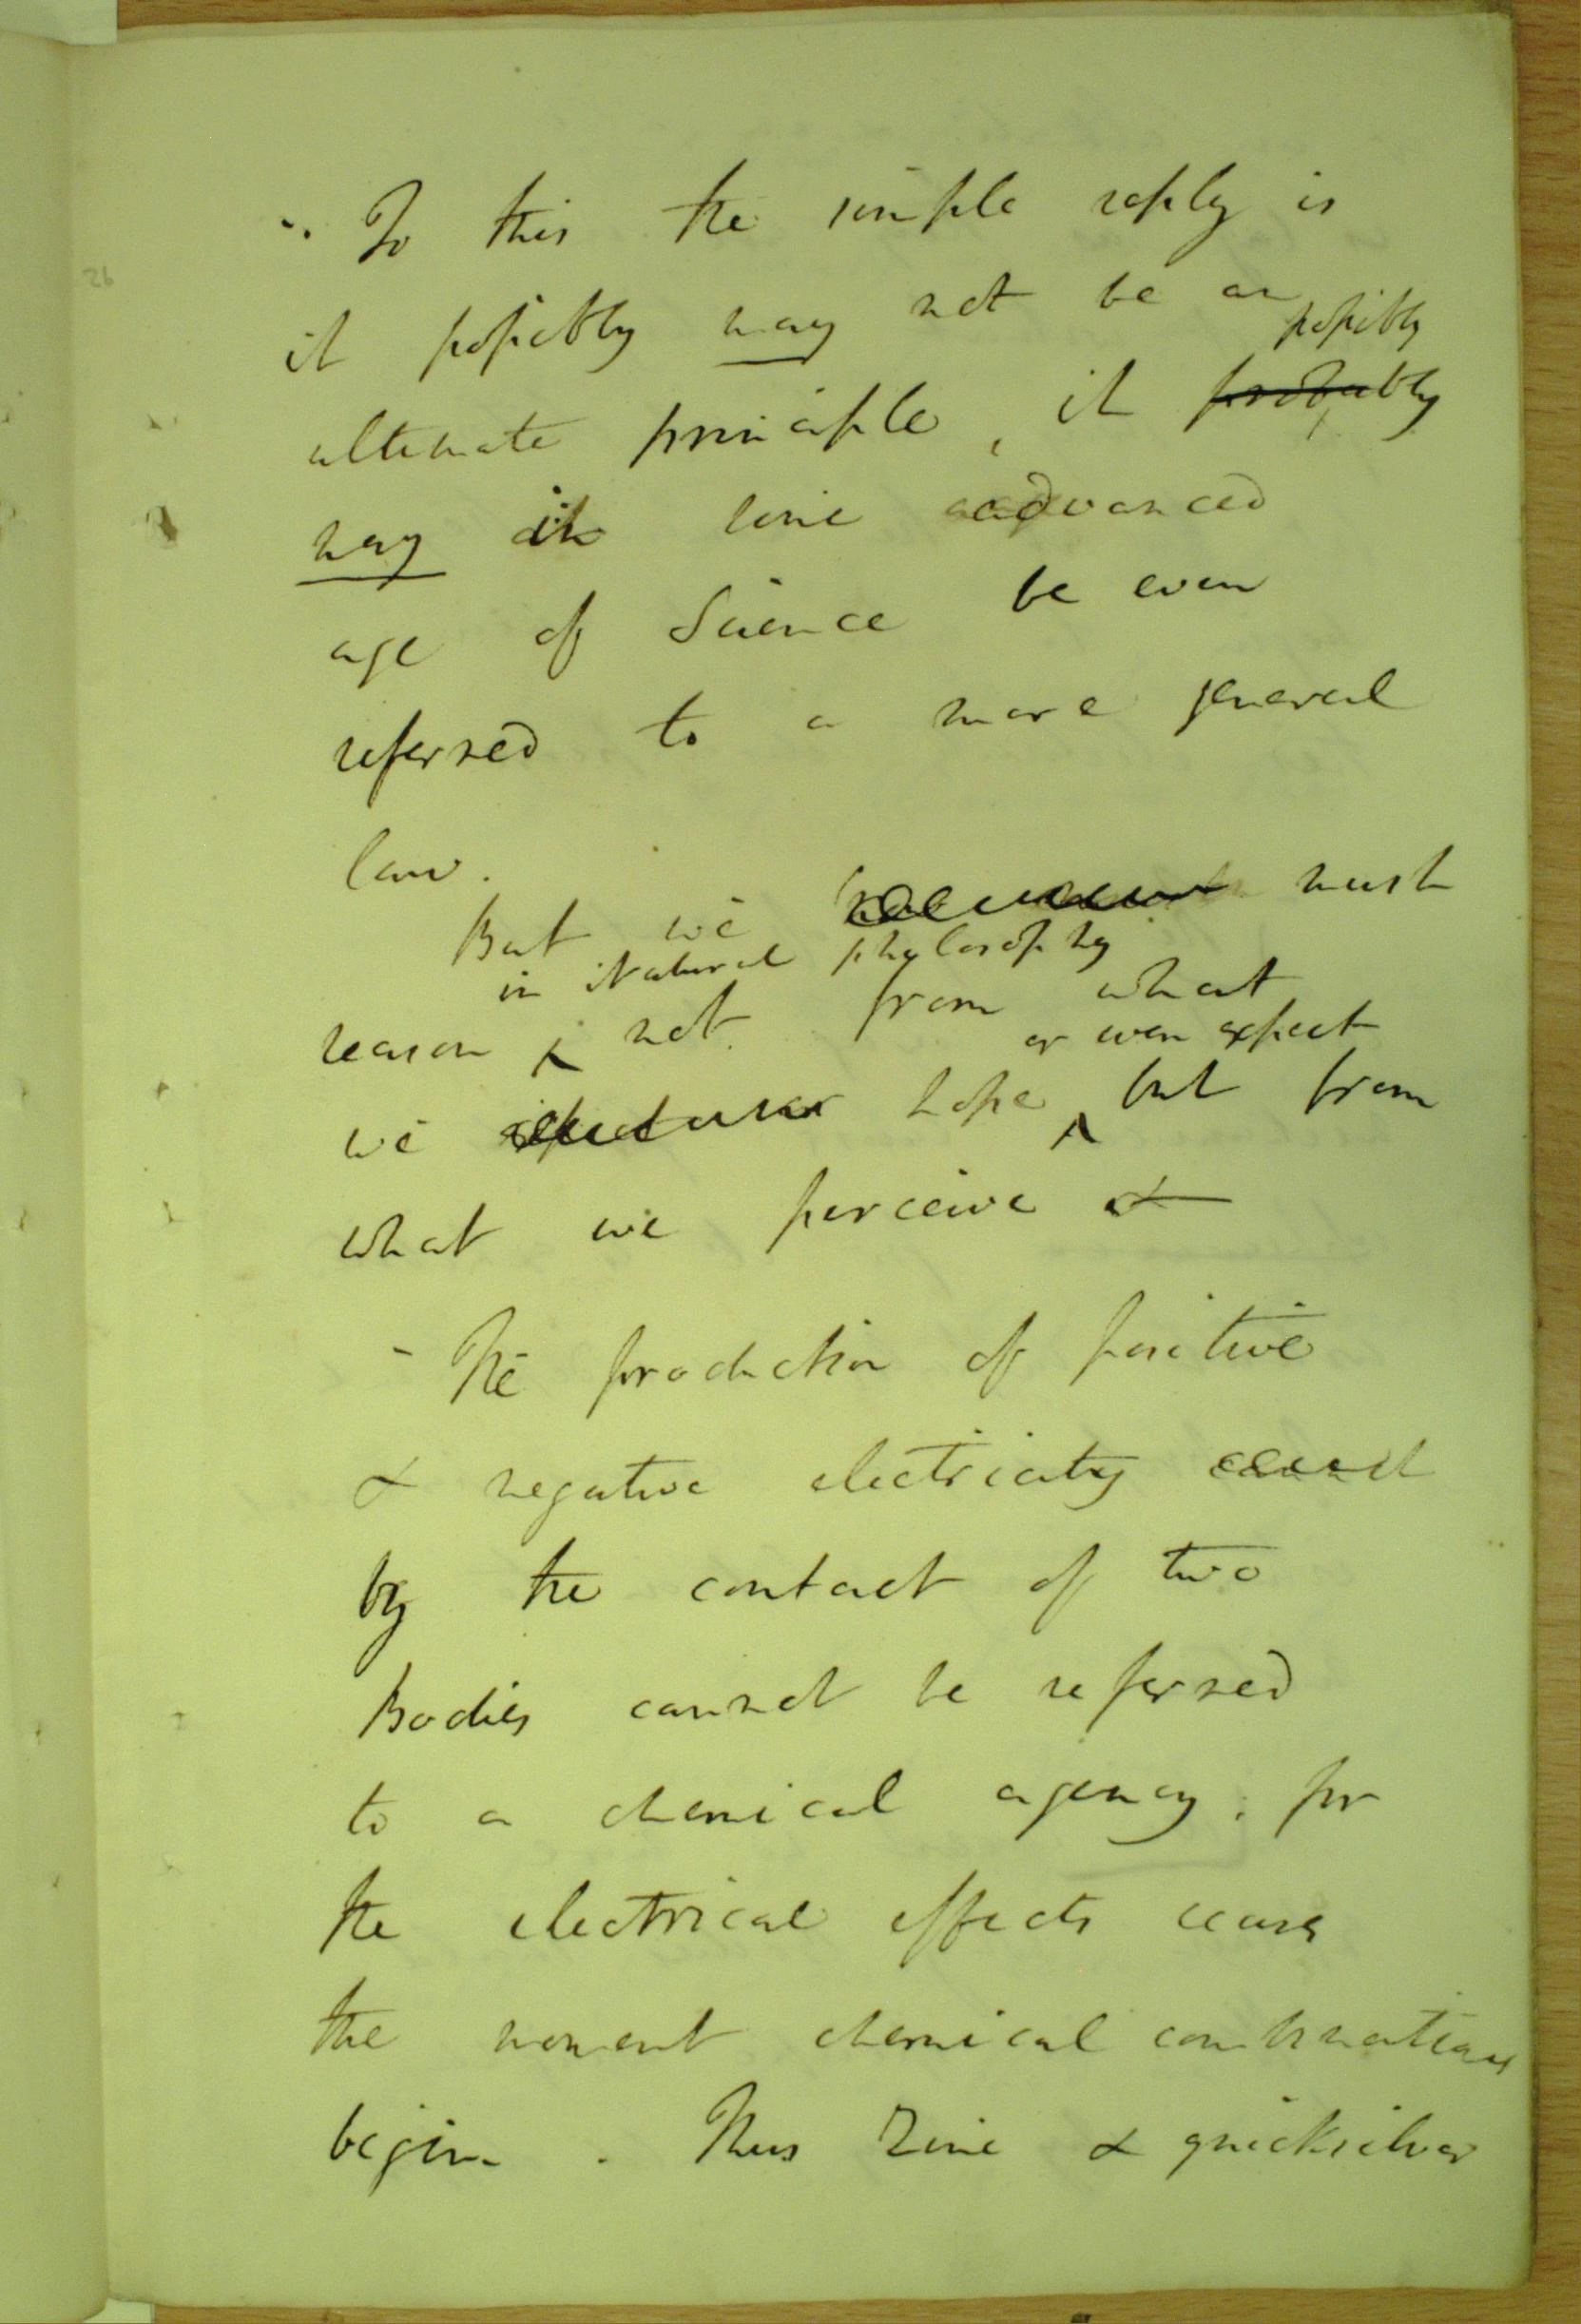 To this the simple reply is
it possibly may not be an
possibly
ultimate principle, it probably
may in some advanced
age of Science be even
referred to a more general
law.
But we must
in Natural phylosophy
reason not from what
or even expect
we hope but from
what we perceive &
- The production of positive
& negative electricity
by the contact of two
Bodies cannot be referred
to a chemical agency; for
the electrical effects cease
the moment chemical combinations
begin. Thus Zinc & quicksilver